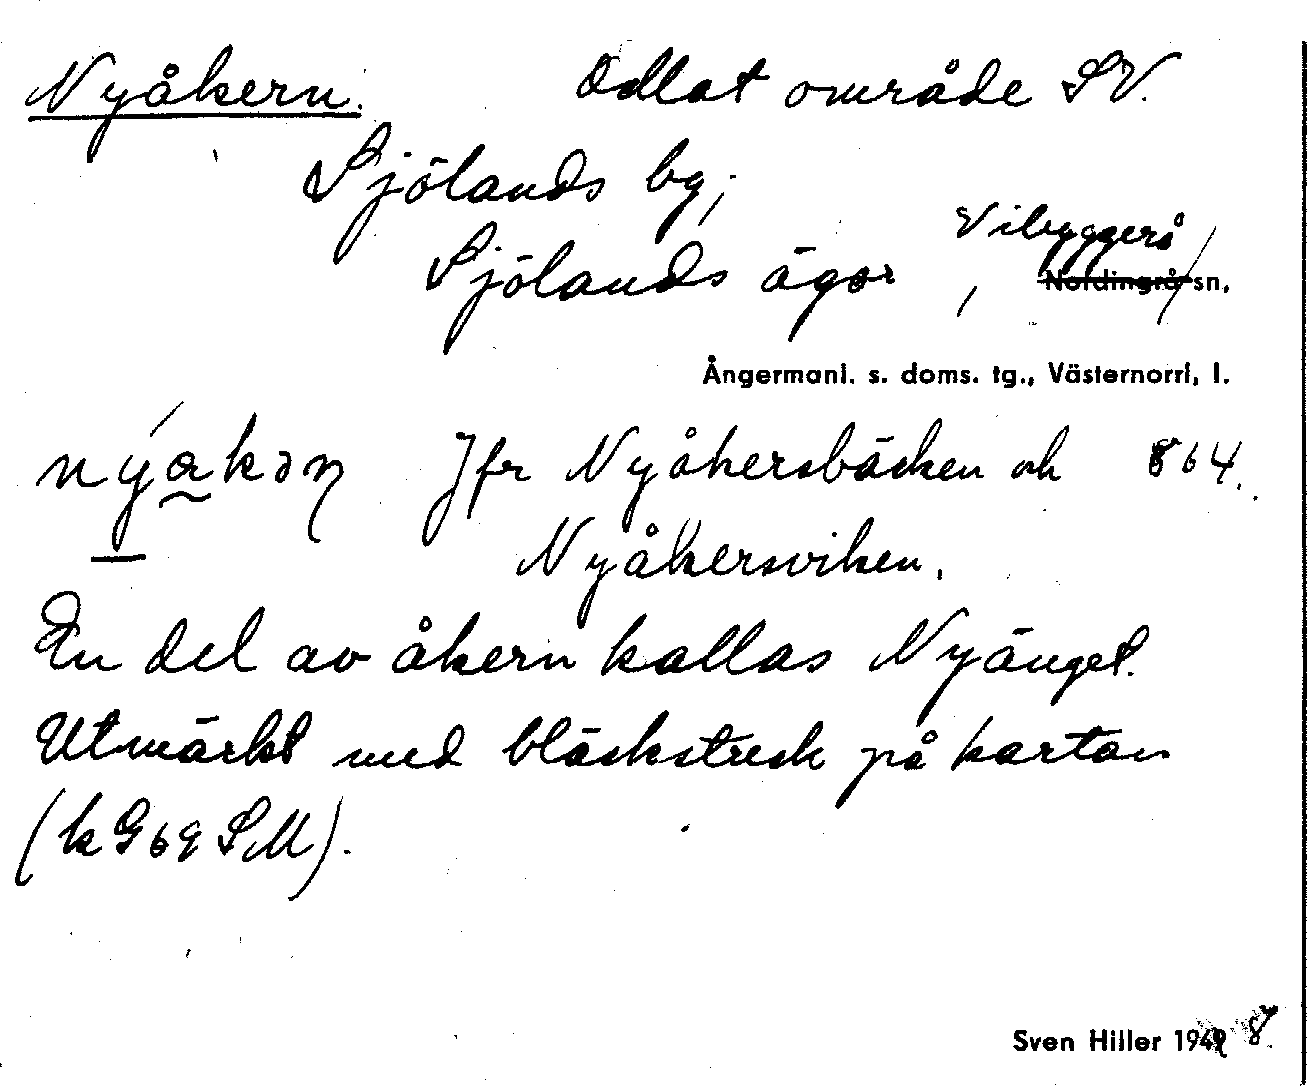 Nyåkern. Odlat område SV.
Sjölands bg;
Sjölands ägor, Vibyggerå
Nordingrå sn,
Ångermanl. s. doms. tg., Västernorrl, l.
nýakən Jfr Nyåkersbäcken och 864.
Nyåkersviken.
En del av åkern kallas Nyänget.
Utmärkt med bläckstreck på kartan
(k G69 SM).
Sven Hiller 194 8.